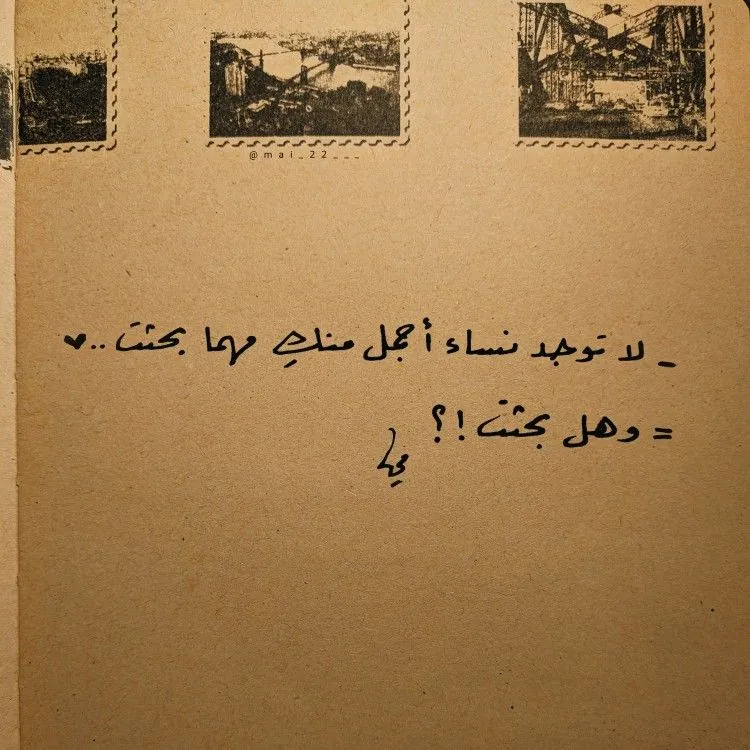 @mai_22___
_ لا توجد نساء أجمل منكِ مهما بحثت..♥
= وهل بحثت!؟
مي